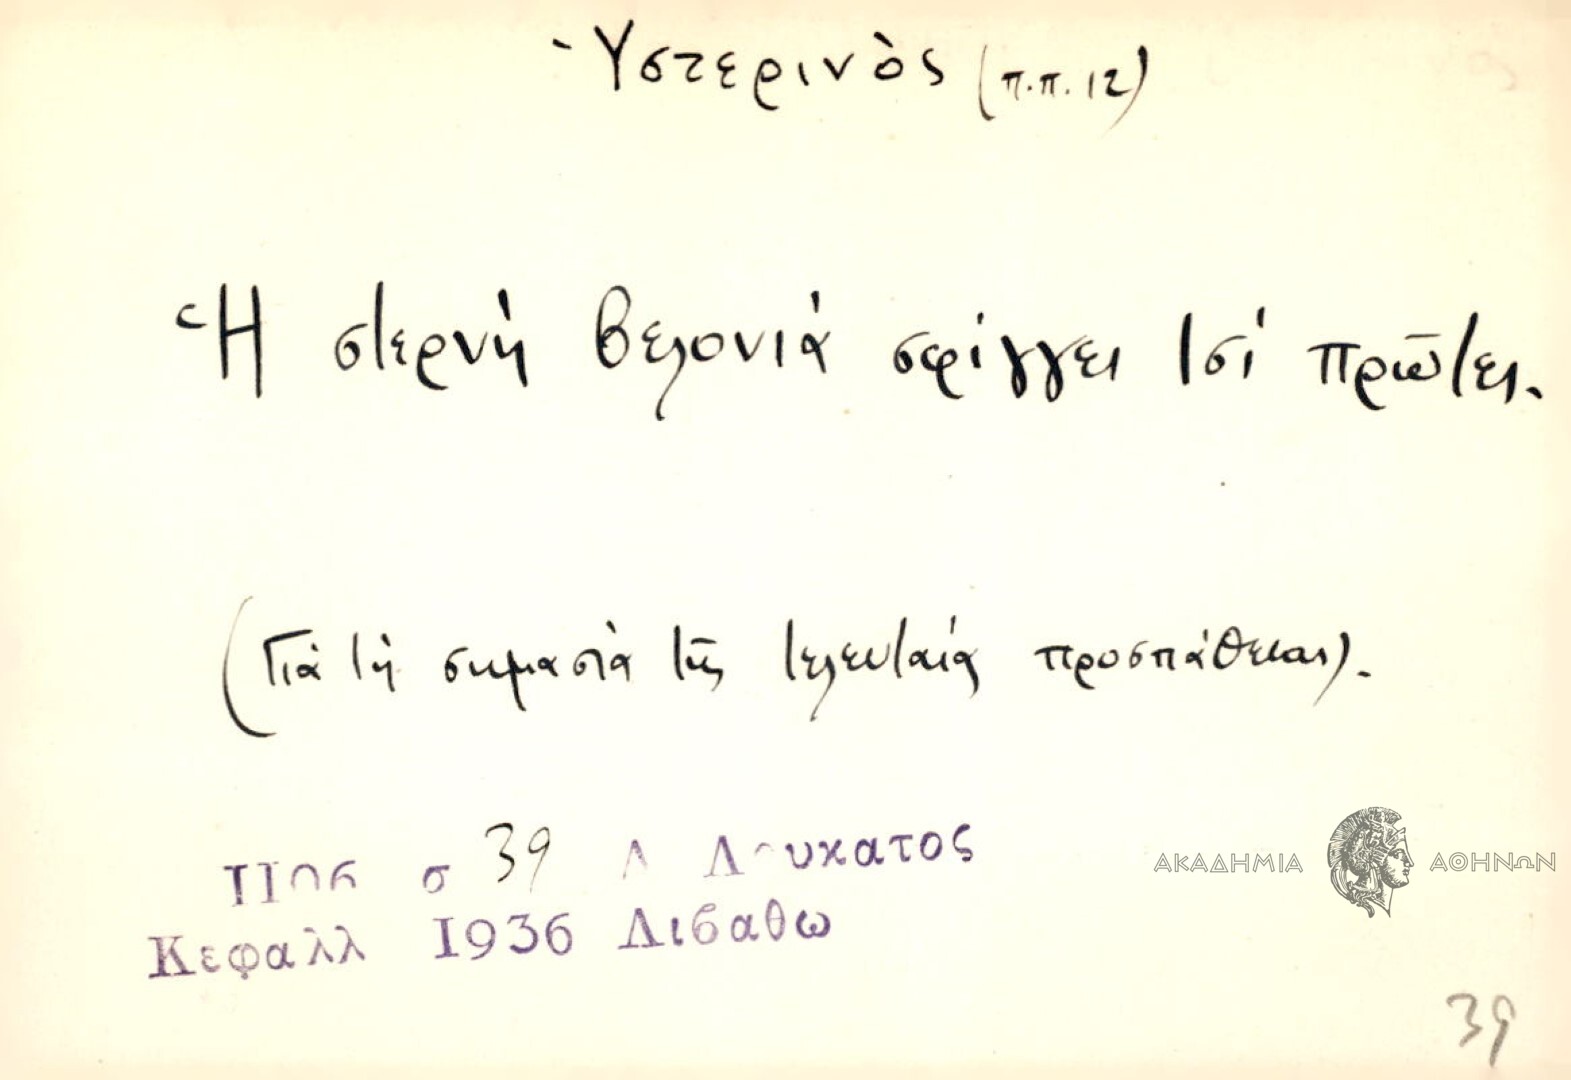 Ὑστερινὸς (π.π. 12)
Ἡ στερνὴ βελονιὰ σφίγγει τσὶ πρῶτες.
(Γιὰ τὴ σημασία τῆς τελευταίας προσπάθειας).
σ 39 Δ Λουκατος
Κεφαλλ 1936 Λιβαθω
ΑΚΑΔΗΜΙΑ ΑΘΗΝΩΝ
39